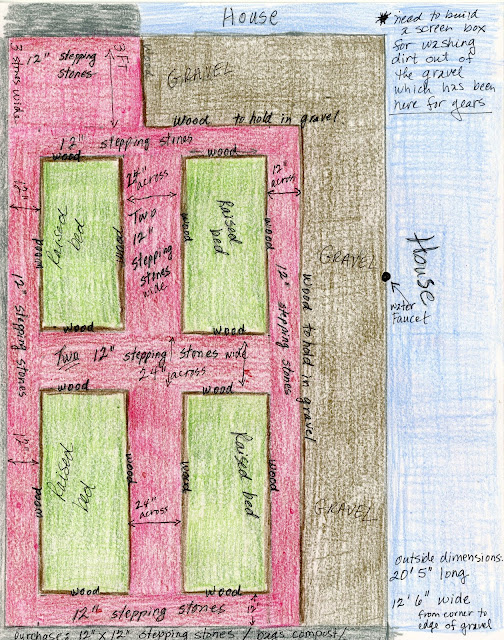 House
* need to build
a screen box
for washing
dirt out of
the gravel
which has been
here for years
3 stones wide
12" stepping
stones
3 FT
GRAVEL
wood to hold in gravel
12" stepping stones
wood
wood
24"
across
12"
across
12"
wood
Raised
bed
wood
Two
12"
stepping
stones
wide
Raised
bed
wood
12" stepping stones
wood to hold in gravel
GRAVEL
House
water
Faucet
12" stepping stones
wood
wood
Two 12" stepping stones wide
24" across
wood
wood
12"
wood
Raised
bed
wood
24"
across
wood
Raised bed
wood
GRAVEL
wood
wood
12" stepping stones
12"
outside dimensions:
20' 5" long
12' 6" wide
from corner to
edge of gravel
purchase: 12" x 12" stepping stones / bags compost/